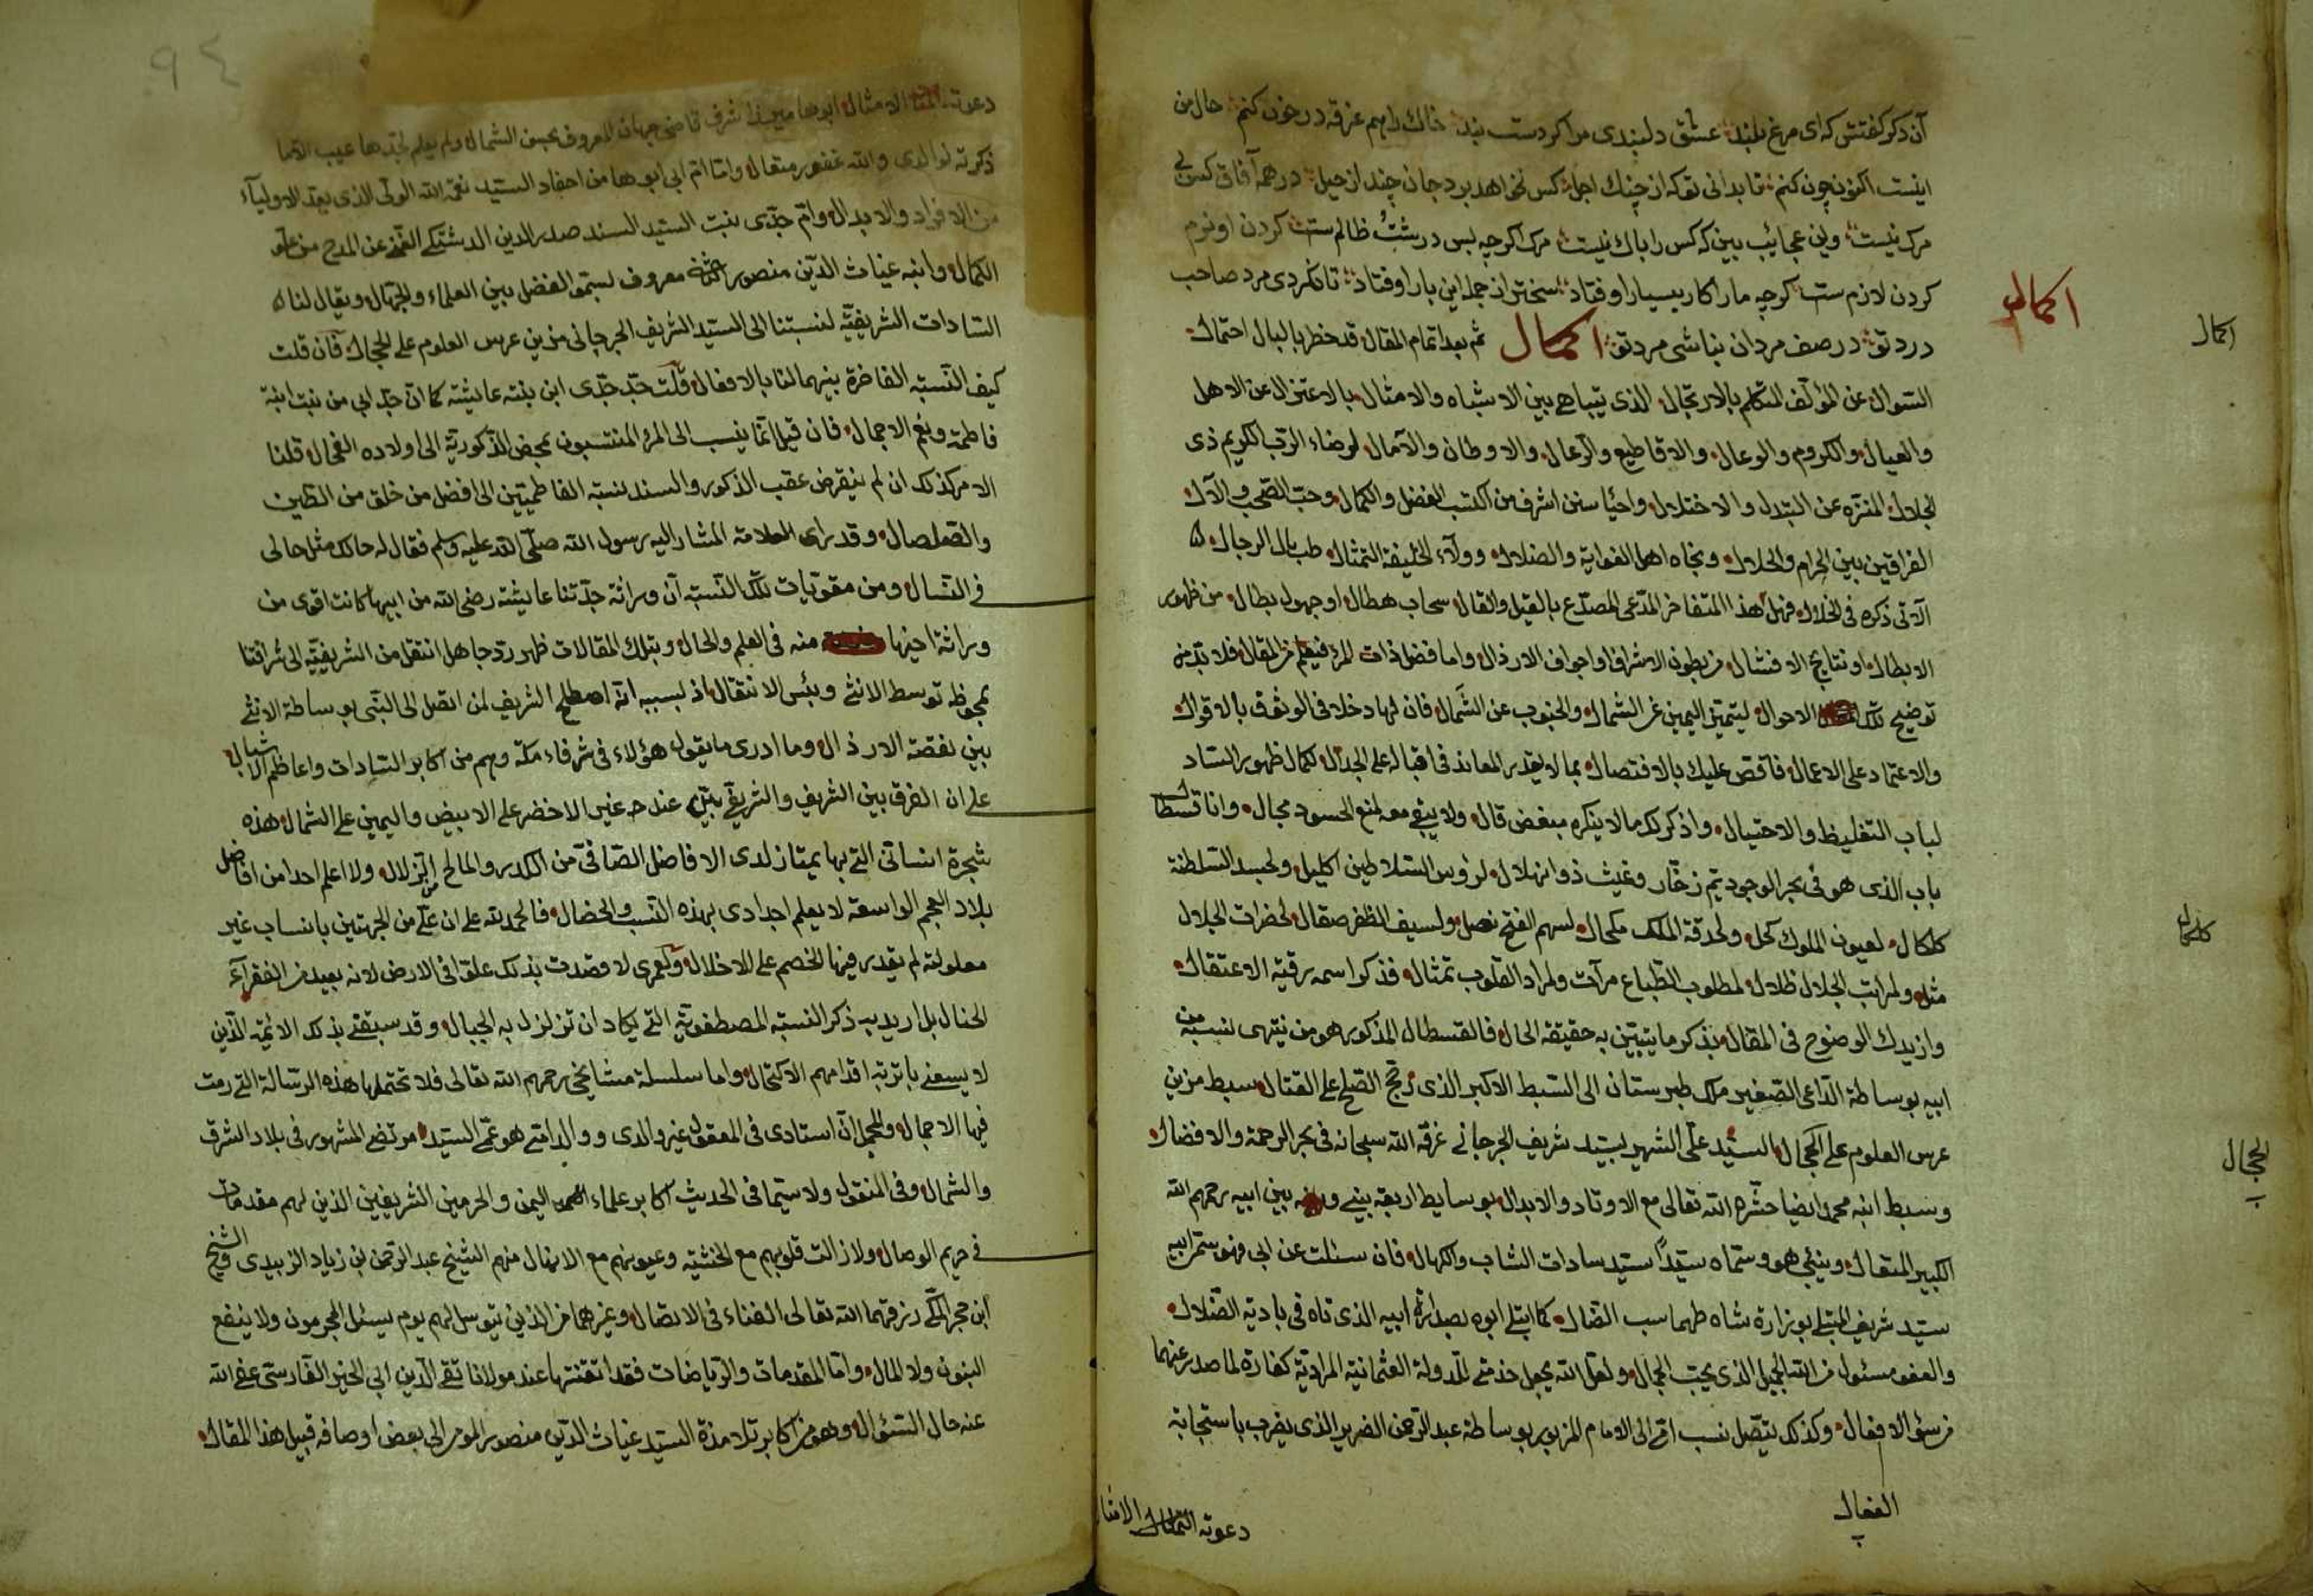 آن دکر کفتش که ای مرغ بلند عشق دلبندی مرا کردست بند خاک راهم غرقه در خون کنم حال من
اینست اکنون چون کنم تا بدانی تو که از چنك اجل کس نخواهد برد جان چند از حیل در همه آفاق کس بی
مرک نیست وین عجایب بین که کس را باك نیست مرک اکرچه بس درشت ظالمست کردن او نرم
کردن لازم ست کرچه ما را کار بسیار اوفتاد سختر از جمله این بار اوفتاد تا نکردی مرد صاحب
درد تو در صف مردان نباشی مرد تو اکمال ثم بعد اتمام المقال قد خطر بالبال احتمال
اکمال
اکمال
السؤال عن المؤلف المتکلم بالارتجال الذی یتباهی بین الاشباه والامثال بالاعتزال عن الاهل
والعیال والکروم والوعال والاقاطیع والرعال والاوطان والآمال لرضاء الرب الکریم ذی
الجلال المنزه عن التبدل والاختلال واحیا سنن اشرف من اکتسب الفضل والکمال وحب الصحب والآل
الفراقین بین الحرام والحلال ونجاه اهل الغوایة والضلال وولاء الخلیفة التمثال طب بال الرجال
الآتی ذکره فی الخلال فهل هذا المتفاخر المدعی المصدع بالقیل والقال سحاب هطال او جهول بطال من ظهور
الابطال او نتایج الافشال من بطون الاشراف او اجواف الارذال واما فضل ذات المرء فیعلم من المقال فلابد من
توضیح تلك الاحوال لیتمیز الیمین عن الشمال والجنوب عن الشمال فان لها دخلا فی الوثوق بالاقوال
والاعتماد علی الاعمال فاقص علیك بالاقتصال بما لا یقدر المعاند فی اقباله علی الجدال لکمال ظهور السداد
لباب التغلیظ والاحتیال واذکر لك ما لا ینکره مبغض قال ولا یبقی معه لمنع الحسود مجال وانا قسطال
باب الذی هو فی بحر الوجود یم زخار وغیث ذو انهلال لرؤس السلاطین اکلیل ولجسد السلطنة
کلکال لعیون الملوك کحل ولحدقة الملك مکحال لسهم الفتح نصل ولسیف الظفر صقال لحضرات الجلال
کلکال
مثل ولمراتب الجلال ظلال لمطلوب الطباع مرآت ولمراد القلوب تمثال فذکر اسمه رقیة الاعتقال
وازیدك الوضوح فی المقال بذکر ما یتبین به حقیقة الحال فالقسطال المذکور هو من ینتهی نسبه من
ابیه بوساطة الداعی الصغیر ملك طبرستان الی السبط الاکبر الذی رجح الصلح علی القتال سبط مزین
عرس العلوم علی الحجال السید علی الشهیر بسید شریف الجرجانی غرقه الله سبحانه فی بحر الرحمة والافضال
الحجال
وسبط ابنه محمد ایضا حشره الله تعالی مع الاوتاد والابدال بوسایط اربعة بینی و بین ابیه رحمهم الله
الکبیر المتعال وبینی هو وسماه سیدا سید سادات الشاب والکهال فان سئلت عن ابی فهو سمی ابیه
سید شریف المبتلی بوزارة شاه طهماسب الضال کما ابتلی ابوه بصدارة ابیه الذی تاه فی بادیة الضلال
والعفو مسئول من الله الجمیل الذی یحب الجمال ولعل الله یجعل خدمتی للدولة العثمانیة المرادیة کفارة لما صدر عنهما
من سؤ الافعال وکذلك یتصل نسب امی الی الامام المزبور بوساطة عبد الرحمن الضریر الذی یضرب باستجابة
الفعال
دعوته الامثال
دعوته الامثال ابوها شرف قاضی جهان المعروف بحسن الشمال ولم یعلم لجدها عیب الا ما
ذکرته لوالدی والله غفور متعال واما ام ابی ابوها من احفاد السید نعمة الله الولی الذی یعد الاولیآء
من الافراد والابدال وام جدی بنت السید السند صدر الدین الدشتکی الغنی عن المدح من علو
الکمال وابنه غیاث الدین منصور معروف بسمو الفضل بین العلماء والجهال ویقال لنا
السادات الشریفیة لنسبتنا الی السید الشریف الجرجانی مزین عرس العلوم علی الحجال فان قلت
کیف النسبة الفاخرة بینهما لنا بالافعال قلت جد جدی ابن بنته عایشة کما ان جد ابی من بنت ابنة
فاطمة ونعم الاجمال فان قیل انما ینسب الی المرء المنتسبون بمحض الذکوریة الی اولاده الفحال قلنا
الامر کذلك ان لم ینقرض عقب الذکور والسند نسبة الفاطمیین الی افضل من خلق من الطین
والصلصال وقد رای العلامة المشار الیه رسول الله صلی الله علیه وسلم فقال له حالك مثل حالی
فی النسال ومن مقویات تلك النسبة ان وراثة جدتنا عایشة رضی الله من ابیها کانت اقوی من
وراثة اخیها منه فی العلم والحال وبتلك المقالات ظهر رد جاهل انتقل من الشریفیة الی شرافتنا
بمحوظ توسط الانثی وبئس الانتقال اذ لسببه انه اصطلح الشریف لمن اتصل الی النبی بوساطة الانثی
بین نقصة الارذال وما ادری ما یقول هؤلاء فی شرفاء مکة وهم من اکابر السادات واعاظم الاشبال
علی ان الفرق بین الشریف والشریفی بین عند مرغنی الاخضر علی الابیض والیمین علی الشمال هذه
شجرة انسانی التی بها یمتاز لدی الافاضل الصافی من الکدر والمالح من الزلال ولا اعلم احدا من افاضل
بلاد العجم الواسعة لا یعلم اجدادی بهذه النسب والخصال فالحمد لله علی ان علی من الجهتین بانساب غیر
معلولة لم یقدر فیها الخصم علی الاخلال ولعمری لا قصدت بذلك علوا فی الارض لانه بعید من الفقرآء
الحنال بل ارید به ذکر النسبة المصطفویة التی یکاد ان تزلزل به الجبال وقد سبقنی بذلك الائمة الذین
لا یسعنی بتربة اقدامهم الاکتحال واما سلسلة مشایخی رحمهم الله تعالی فلا تحتملها هذه الرسالة التی رمت
فیها الاجمال والمجمل ان استادی فی المعقول غیر والدی ووالدتی هو عمی السید مرتضی المشهور فی بلاد الشرق
والشمال وفی المنقول ولا سیما فی الحدیث اکابر علماء الیمن والحرمین الشریفین الذین لهم مقدمات
فی حریم الوصال ولا زالت قلوبهم مع الخشیة وعیونهم مع الانهال منهم الشیخ عبد الرحمن بن زیاد الزبیدی والشیخ
ابن حجر المکی رزقهما الله تعالی الفناء فی الاتصال وغیرهما من الذین یتوسل لهم یوم یسئل المجرمون ولا ینفع
البنون ولا المال واما المقدمات والریاضات فقد اتقنتها عند مولانا تقی الدین ابی الخیر الفارسی عفی الله
عنه حال السئوال وهو من اکابر تلامذة السید غیاث الدین منصور المومی الی بعض اوصافه قبیل هذا المقال
٩٤